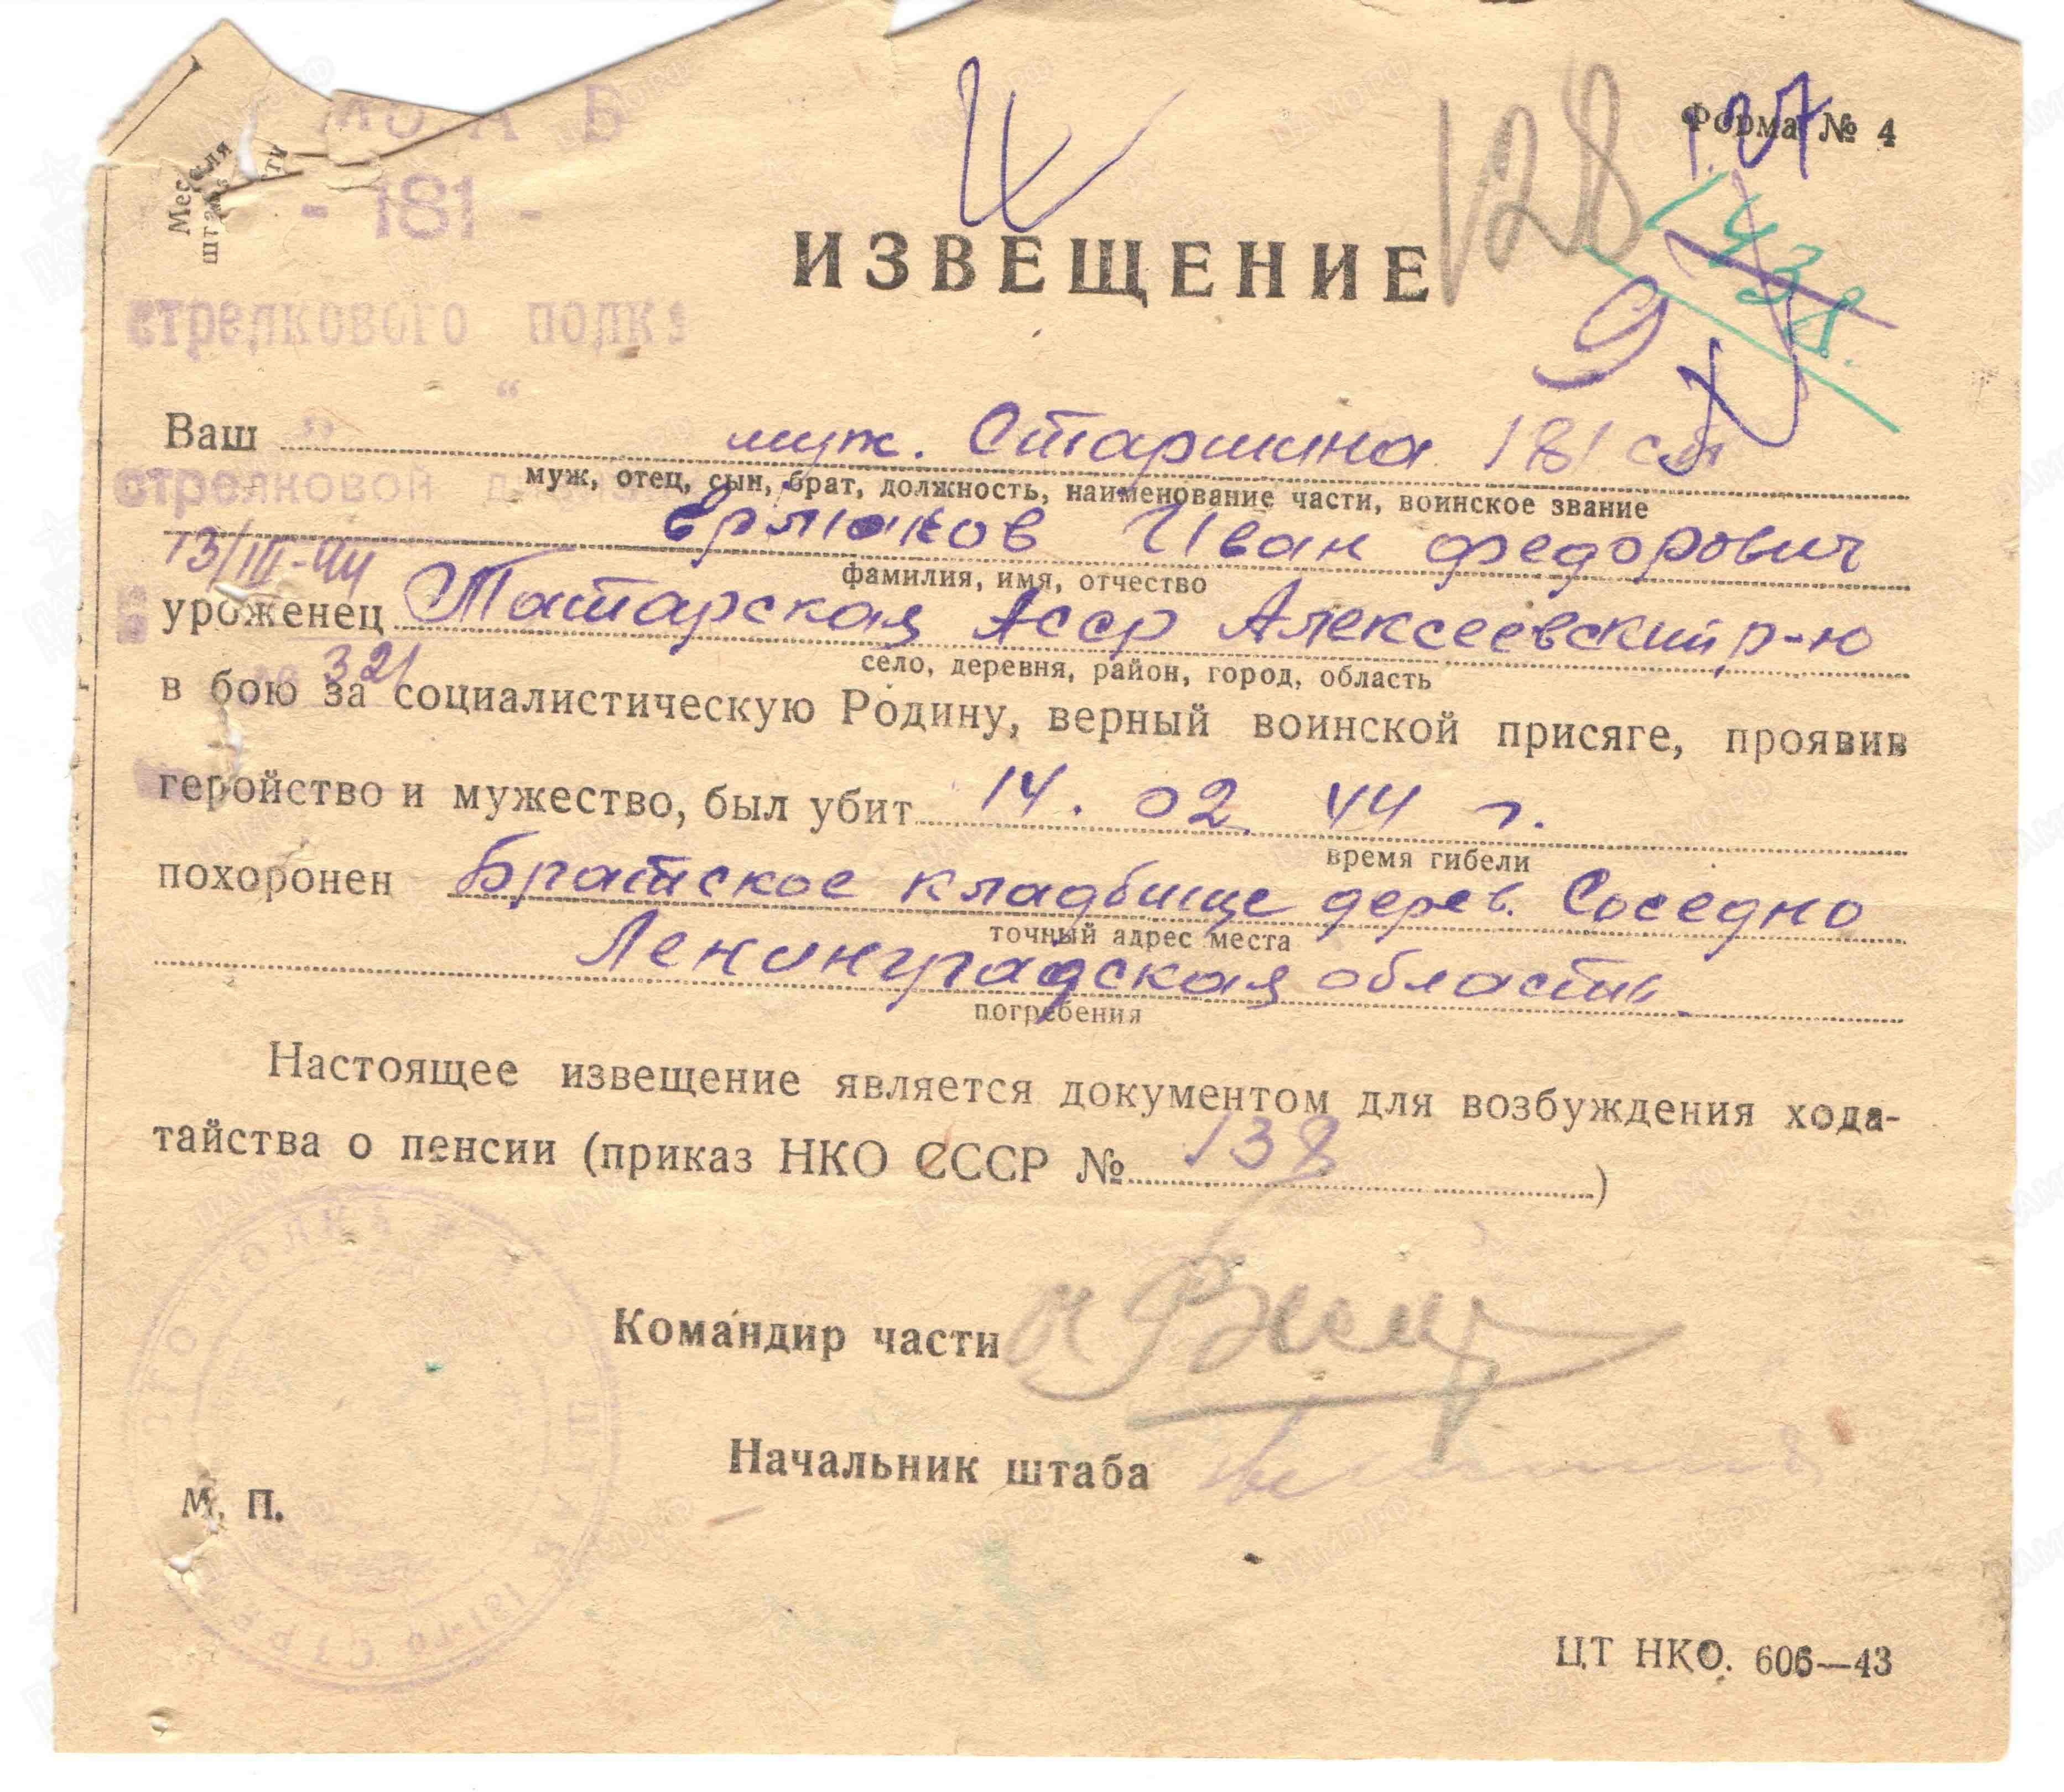 Форма № 4
1.27
128
1438.
9
Место для
штампа части
ШТАБ
- 181 -
стрелкового полка
"   "
стрелковой
13/III-44
№ 321
ИЗВЕЩЕНИЕ
Ваш муж. Старшина 181 сп
муж, отец, сын, брат, должность, наименование части, воинское звание
Ермаков Иван Федорович
фамилия, имя, отчество
уроженец Татарская Асср Алексеевский р-ю
село, деревня, район, город, область
в бою за социалистическую Родину, верный воинской присяге, проявив
геройство и мужество, был убит 14. 02. 44 г.
время гибели
похоронен Братское кладбище дерев. Соседно
точный адрес места
Ленинградская области.
погребения
Настоящее извещение является документом для возбуждения хода-
тайства о пенсии (приказ НКО СССР № 138 )
Командир части
Начальник штаба
М. П.
181-го СТРЕЛ
ЦТ НКО. 606—43